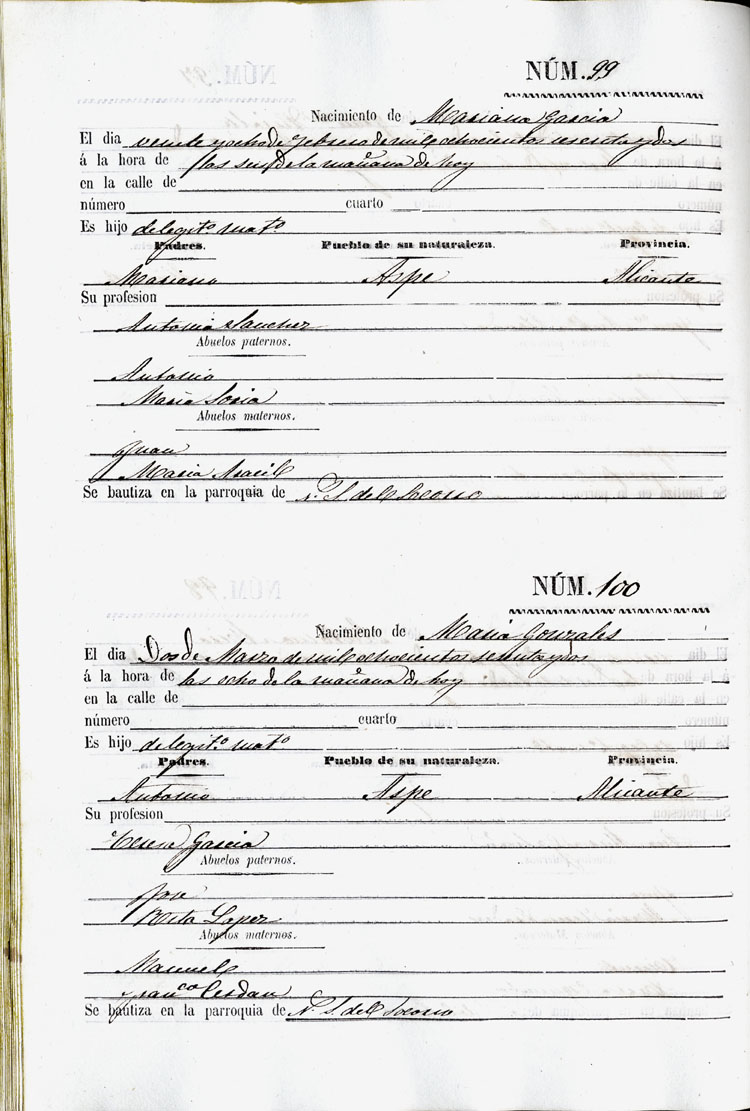 NÚM. 99
Nacimiento de Mariana Garcia
El dia veinte y ocho de Febrero de mil ochocientos sesenta y dos
á la hora de las seis de la mañana de hoy
en la calle de
número cuarto
Es hijo de legit.º mat.º
Padres. Pueblo de su naturaleza. Provincia.
Mariano Aspe Alicante
Su profesion
Antonia Sanchez
Abuelos paternos.
Antonio
Maria Soria
Abuelos maternos.
Juan
Maria Aracil
Se bautiza en la parroquia de N. S. del Socorro
NÚM. 100
Nacimiento de Maria Gonzales
El dia Dos de Marzo de mil ochocientos sesenta y dos
á la hora de las ocho de la mañana de hoy
en la calle de
número cuarto
Es hijo de legit.º mat.º
Padres. Pueblo de su naturaleza. Provincia.
Antonio Aspe Alicante
Su profesion
Teresa Garcia
Abuelos paternos.
Jose
Rita Lopez
Abuelos maternos.
Manuel
Fran.ca Cerdan
Se bautiza en la parroquia de N. S. del Socorro